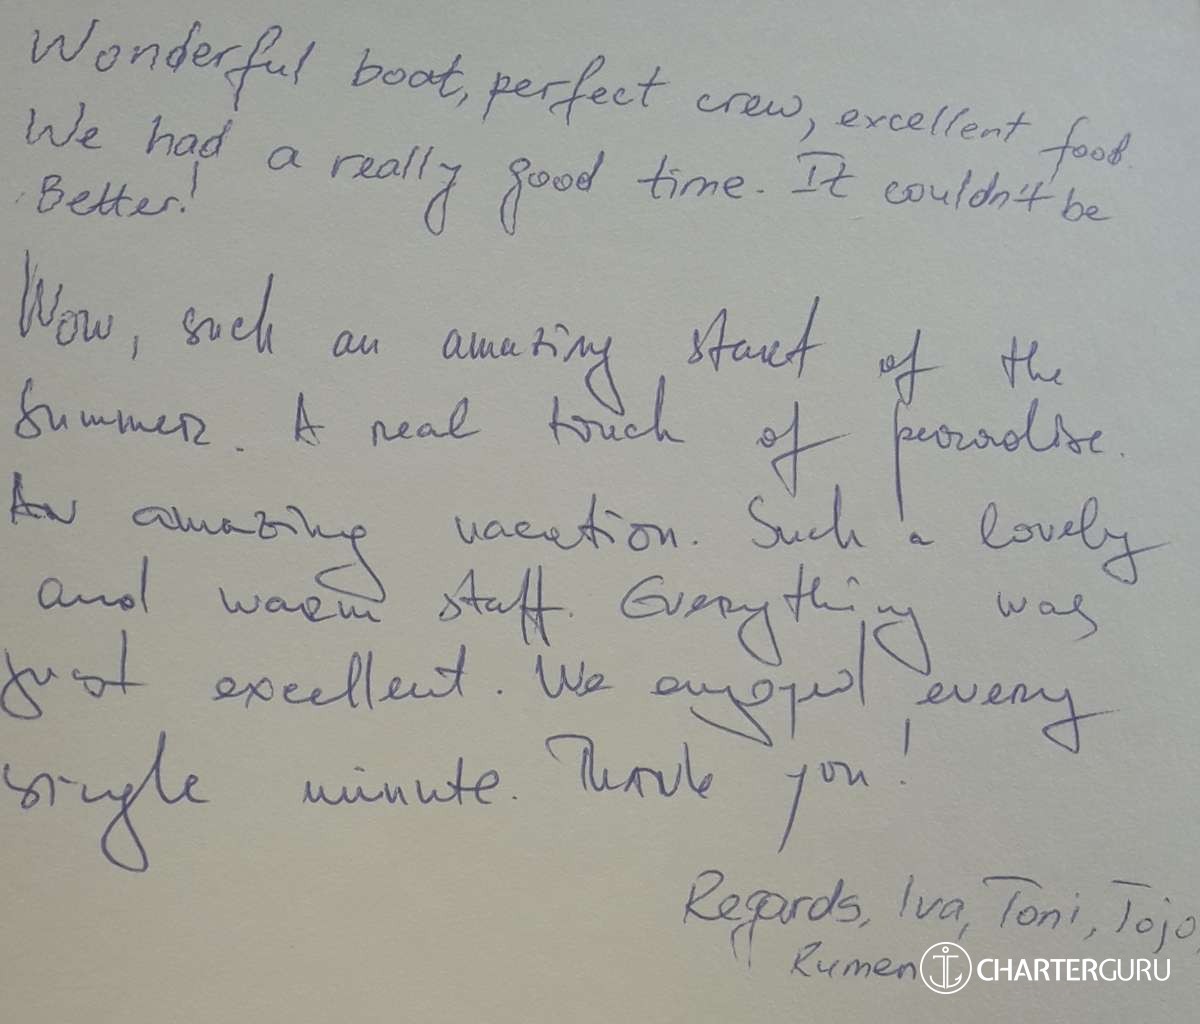 Wonderful boat, perfect crew, excellent food.
We had a really good time. It couldn't be
Better!
Wow, such an amazing start of the
summer. A real touch of paradise.
An amazing vacation. Such a lovely
and warm staff. Everything was
just excellent. We enjoyed every
single minute. Thank you!
Regards, Iva, Toni, Tojo,
Rumen
CHARTERGURU